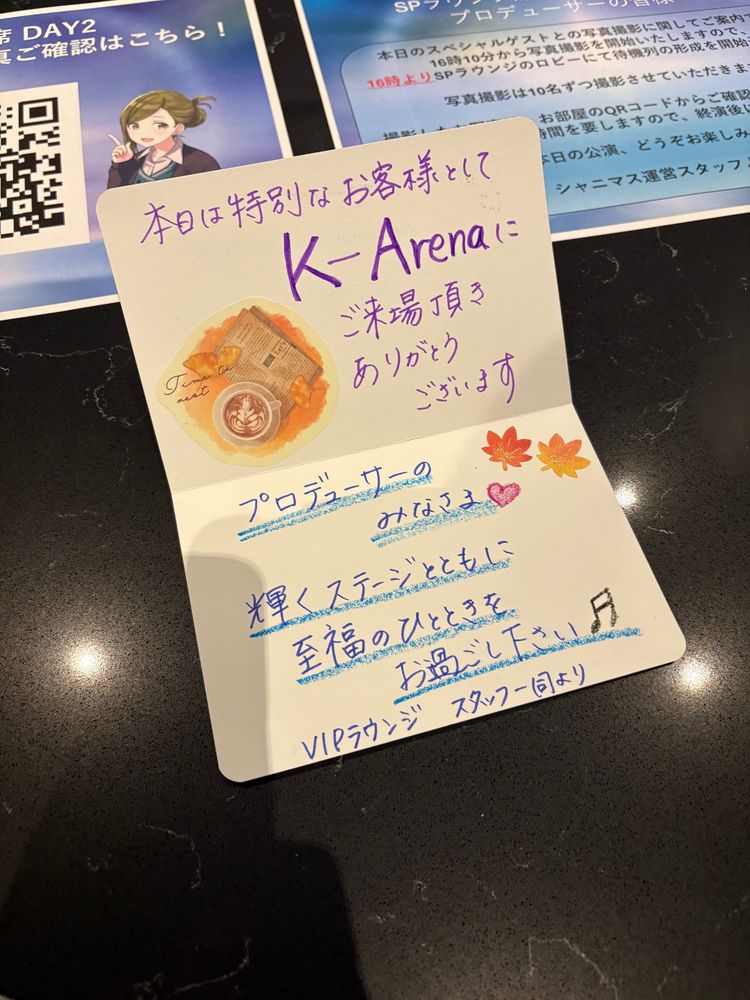 席 DAY2
真ご確認はこちら！
SPラウンジ
プロデューサーの皆様
本日のスペシャルゲストとの写真撮影に関してご案内
16時10分から写真撮影を開始いたしますので、
16時よりSPラウンジのロビーにて待機列の形成を開始
写真撮影は10名ずつ撮影させていただきま
お部屋のQRコードからご確認
時間を要しますので、終演後
本日の公演、どうぞお楽しみ
シャニマス運営スタッフ
本日は特別なお客様として
K-Arenaに
ご来場頂き
ありがとう
ございます
Time to
rest
プロデューサーの
みなさま
輝くステージとともに
至福のひとときを
お過ごし下さい
VIPラウンジ スタッフ一同より